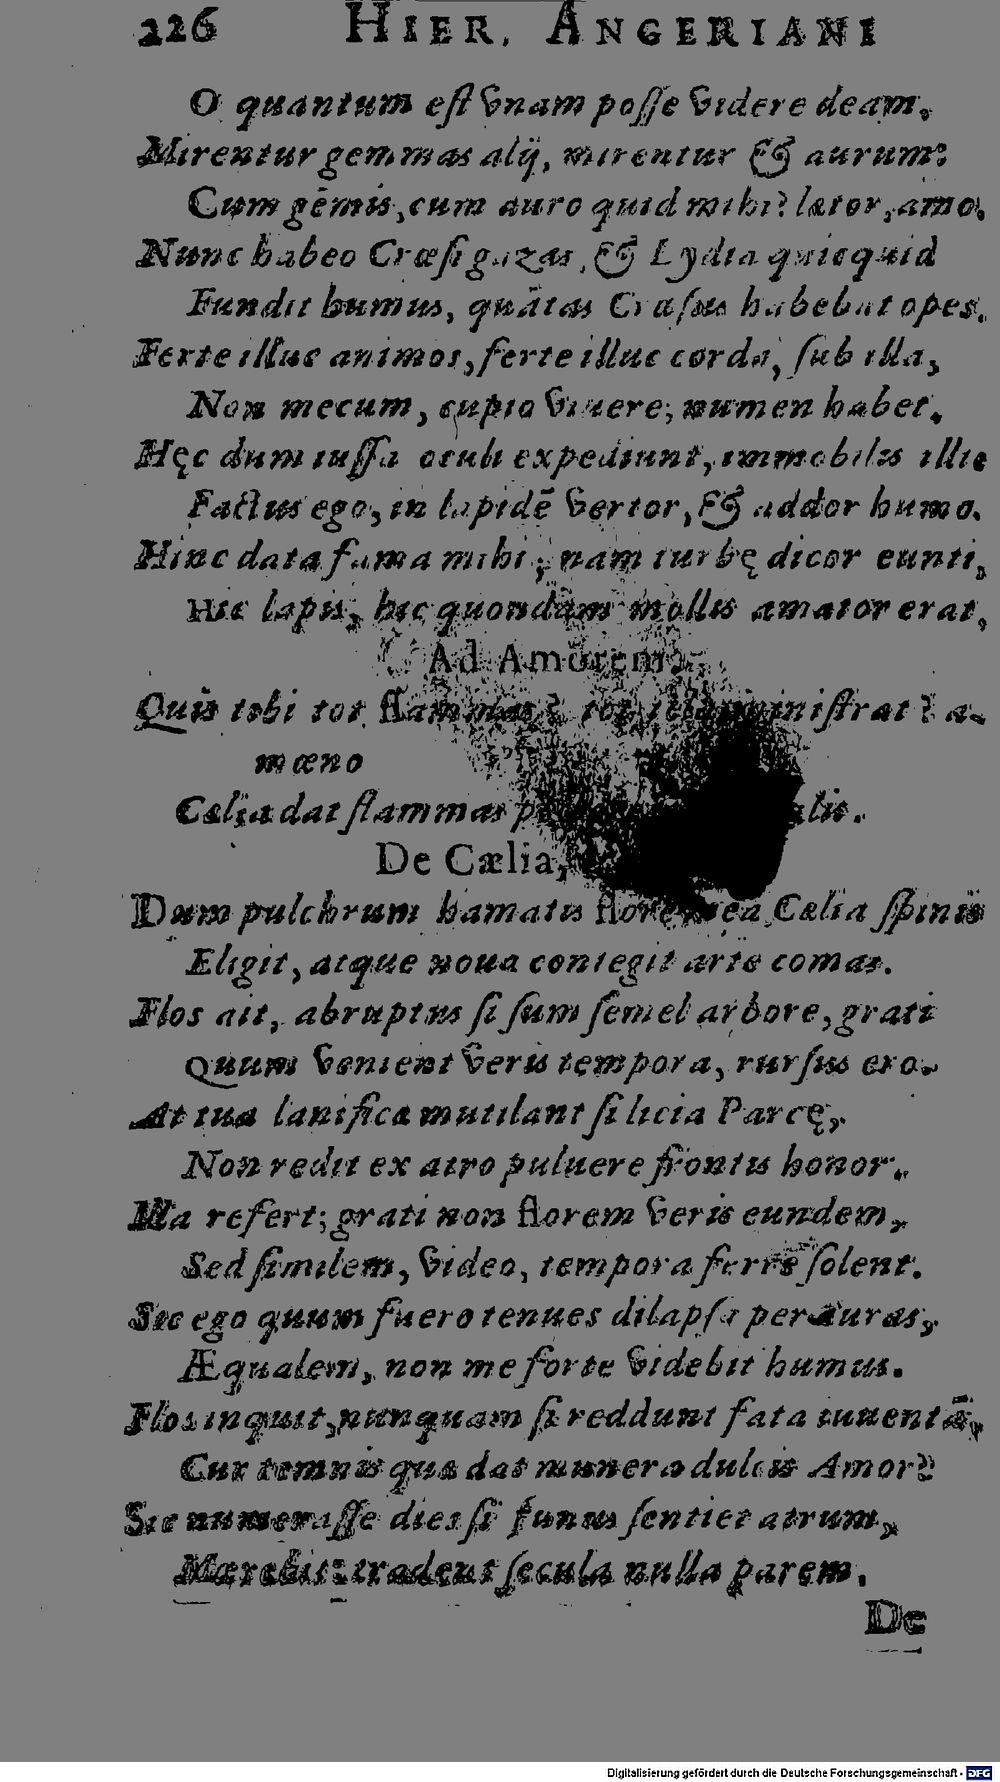 226 HIER. ANGERIANI
O quantum est vnam posse videre deam.
Mirentur gemmas alij, mirentur & aurum:
Cum gēmis, cum auro quid mihi? lætor, amo.
Nunc habeo Crœsi gazas, & Lydia quicquid
Fundit humus, quātas Crassus habebat opes.
Ferte illuc animos, ferte illuc corda, sub illa,
Non mecum, cupio viuere; numen habet.
Hęc dum iussa oculi expediunt, immobilis illic
Factus ego, in lapidē vertor, & addor humo.
Hinc data fama mihi; nam turbę dicor eunti,
Hic lapis, hic quondam mollis amator erat,
Ad Amorem.
Quis tibi tot flammas? tot ministrat? a-
mœno
Cælia dat flammas
De Cælia,
Dum pulchrum hamatis mea Cælia spinis
Eligit, atque noua contegit arte comas.
Flos ait, abruptus si sum semel arbore, grati
Quum venient veris tempora, rursus ero.
At tua lanificæ mutilant si licia Parcę,
Non redit ex atro puluere frontis honor.
Illa refert; grati non florem veris eundem,
Sed similem, video, tempora ferre solent.
Sic ego quum fuero tenues dilapsa per auras,
Æqualem, non me forte videbit humus.
Flos inquit, nunquam si reddunt fata iuuentā,
Cur temnis quæ dat munera dulcis Amor?
Sic numerasse dies si funus sentiet atrum,
Mœrebis: tradent secula nulla parem.
De
Digitalisierung gefördert durch die Deutsche Forschungsgemeinschaft - DFG